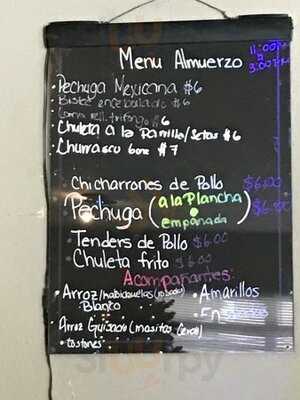 Menu Almuerzo
11:00
3:00 PM
• Pechuga Mexicana $6
• Bistec encebollado $6
$6
• Chuleta a la Parrilla/Setas $6
• Churrasco $7
Chicharrones de Pollo $6.00
Pechuga (a la Plancha o empanada)
Tenders de Pollo $6.00
Chuleta frito $6.00
Acompañantes
• Arroz/habichuelas
Blanco
• Amarillos
• En
• Arroz Guisado
tostones